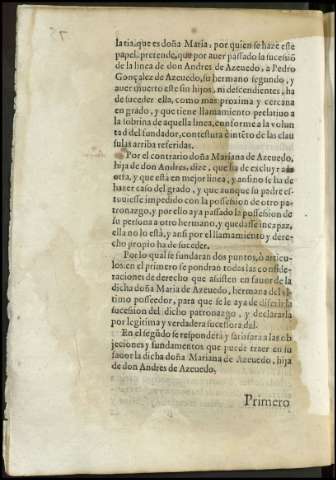 la tia, que es doña Maria, por quien se haze este
papel, pretende, que por auer passado la sucesiõ
de la linea de don Andres de Azeuedo, a Pedro
Gonçalez de Azeuedo, su hermano segundo, y
auer muerto este sin hijos, ni descendientes, ha
de suceder ella, como mas proxima y cercana
en grado, y que tiene llamamiento prelatiuo a
la sobrina de aquella linea, conforme a la volun
tad del fundador, contestura è intẽto de las clau
sulas arriba referidas.
Por el contrario doña Mariana de Azeuedo,
hija de don Andres, dize, que ha de excluyr a la
otra, y que està en mejor linea, y assi no se ha de
hazer caso del grado, y que aunque su padre es-
tuuiesse impedido con la possession de otro pa-
tronazgo, y por ello aya passado la possession de
su persona a otro hermano, y quedasse incapaz,
ella no lo està, y assi por el llamamiento y dere-
cho propio ha de suceder.
Por lo qual se fundaran dos puntos, ò articu-
los: en el primero se pondran todas las conside-
raciones de derecho que assisten en fauor de la
dicha doña Maria de Azeuedo, hermana del vl-
timo posseedor, para que se le aya de diferir la
sucession del dicho patronazgo, y declararla
por legitima y verdadera sucessora del.
En el segũdo se responderà y satisfara a las ob
jeciones y fundamentos que puede traer en su
fauor la dicha doña Mariana de Azeuedo, hija
de don Andres de Azeuedo.
Primero